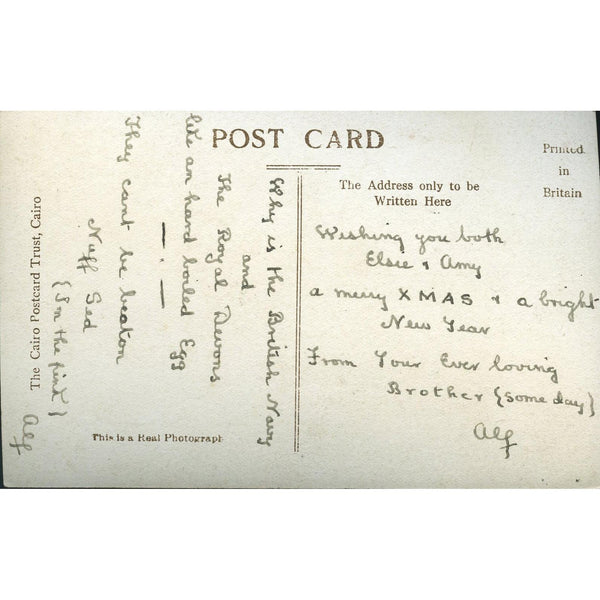 POST CARD
Printed
in
Britain
The Address only to be
Written Here
Why is the British Navy
and
The Royal Devons
like an hard boiled Egg
They cant be beaton
Nuff Sed
Alf
Wishing you both
Elsie & Amy
a merry XMAS & a bright
New Year
From Your Ever loving
Brother {Some day}
Alf
This is a Real Photograph
The Cairo Postcard Trust, Cairo